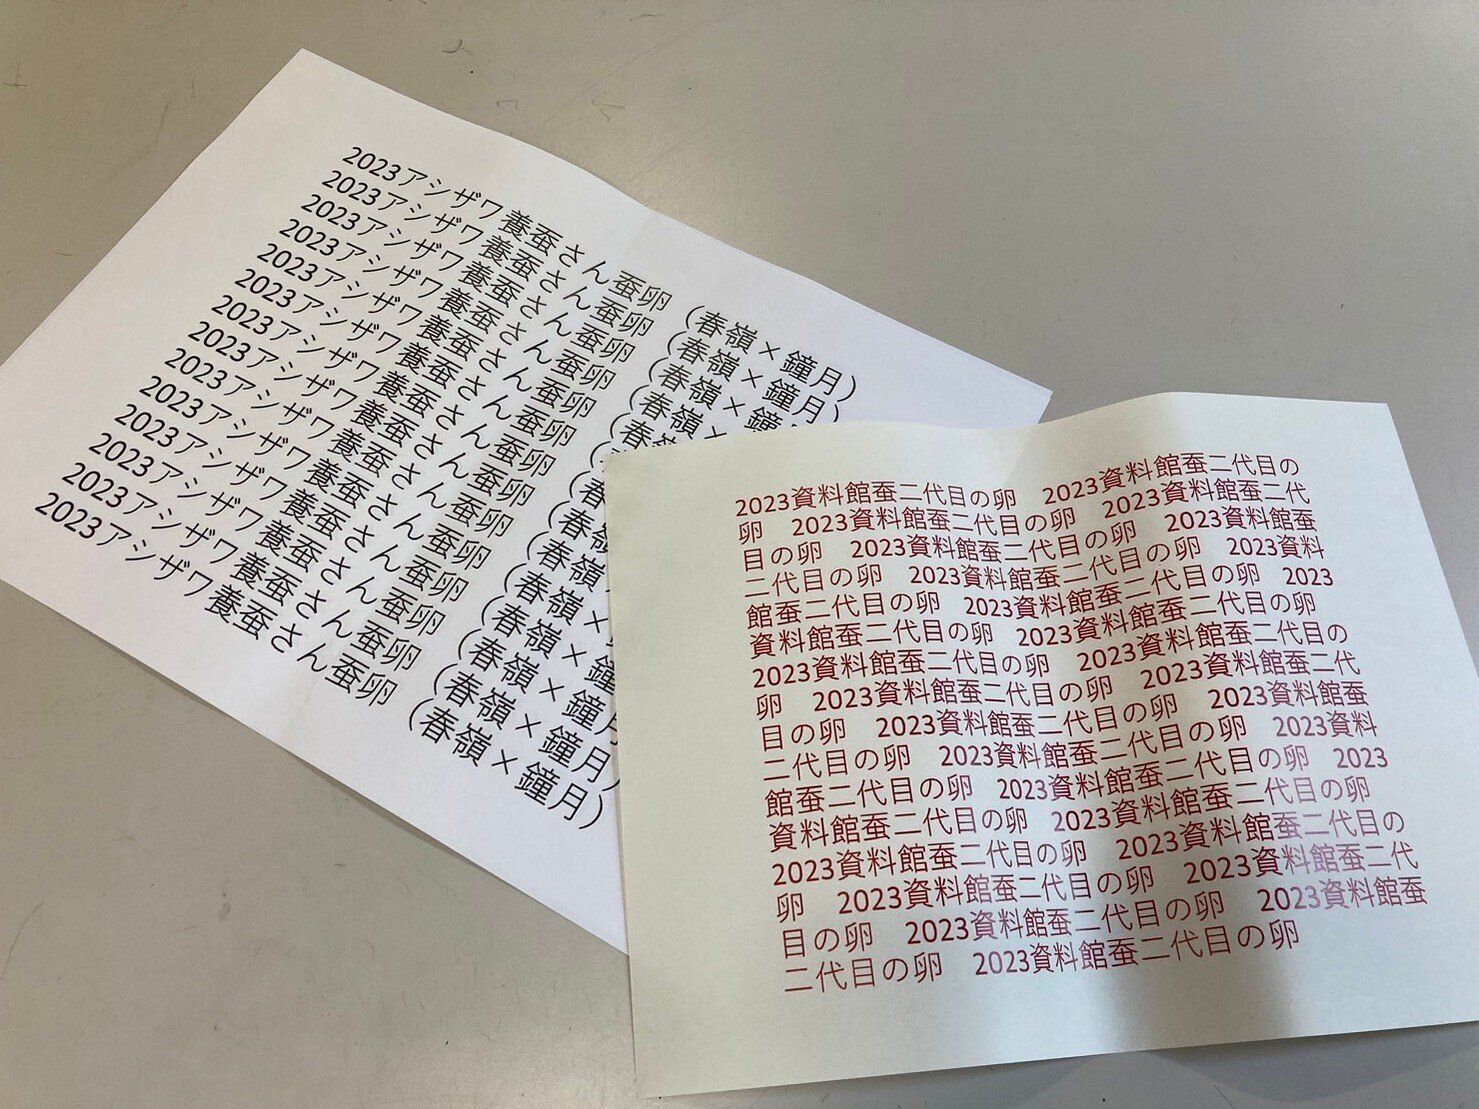 2023アシザワ養蚕さん蚕卵　（春嶺×鐘月）
2023アシザワ養蚕さん蚕卵　（春嶺×鐘月）
2023アシザワ養蚕さん蚕卵　（春嶺×鐘月
2023アシザワ養蚕さん蚕卵　（春嶺×
2023アシザワ養蚕さん蚕卵　（春
2023アシザワ養蚕さん蚕卵　（春
2023アシザワ養蚕さん蚕卵　（春
2023アシザワ養蚕さん蚕卵　（春嶺
2023アシザワ養蚕さん蚕卵　（春嶺
2023アシザワ養蚕さん蚕卵　（春嶺×
2023アシザワ養蚕さん蚕卵　（春嶺×鐘
2023アシザワ養蚕さん蚕卵　（春嶺×鐘月
2023アシザワ養蚕さん蚕卵　（春嶺×鐘月）
2023アシザワ養蚕さん蚕卵　（春嶺×鐘月）
2023資料館蚕二代目の卵　2023資料館蚕二代目の
卵　2023資料館蚕二代目の卵　2023資料館蚕二代
目の卵　2023資料館蚕二代目の卵　2023資料館蚕
二代目の卵　2023資料館蚕二代目の卵　2023資料
館蚕二代目の卵　2023資料館蚕二代目の卵　2023
資料館蚕二代目の卵　2023資料館蚕二代目の卵
2023資料館蚕二代目の卵　2023資料館蚕二代目の
卵　2023資料館蚕二代目の卵　2023資料館蚕二代
目の卵　2023資料館蚕二代目の卵　2023資料館蚕
二代目の卵　2023資料館蚕二代目の卵　2023資料
館蚕二代目の卵　2023資料館蚕二代目の卵　2023
資料館蚕二代目の卵　2023資料館蚕二代目の卵
2023資料館蚕二代目の卵　2023資料館蚕二代目の
卵　2023資料館蚕二代目の卵　2023資料館蚕二代
目の卵　2023資料館蚕二代目の卵　2023資料館蚕
二代目の卵　2023資料館蚕二代目の卵